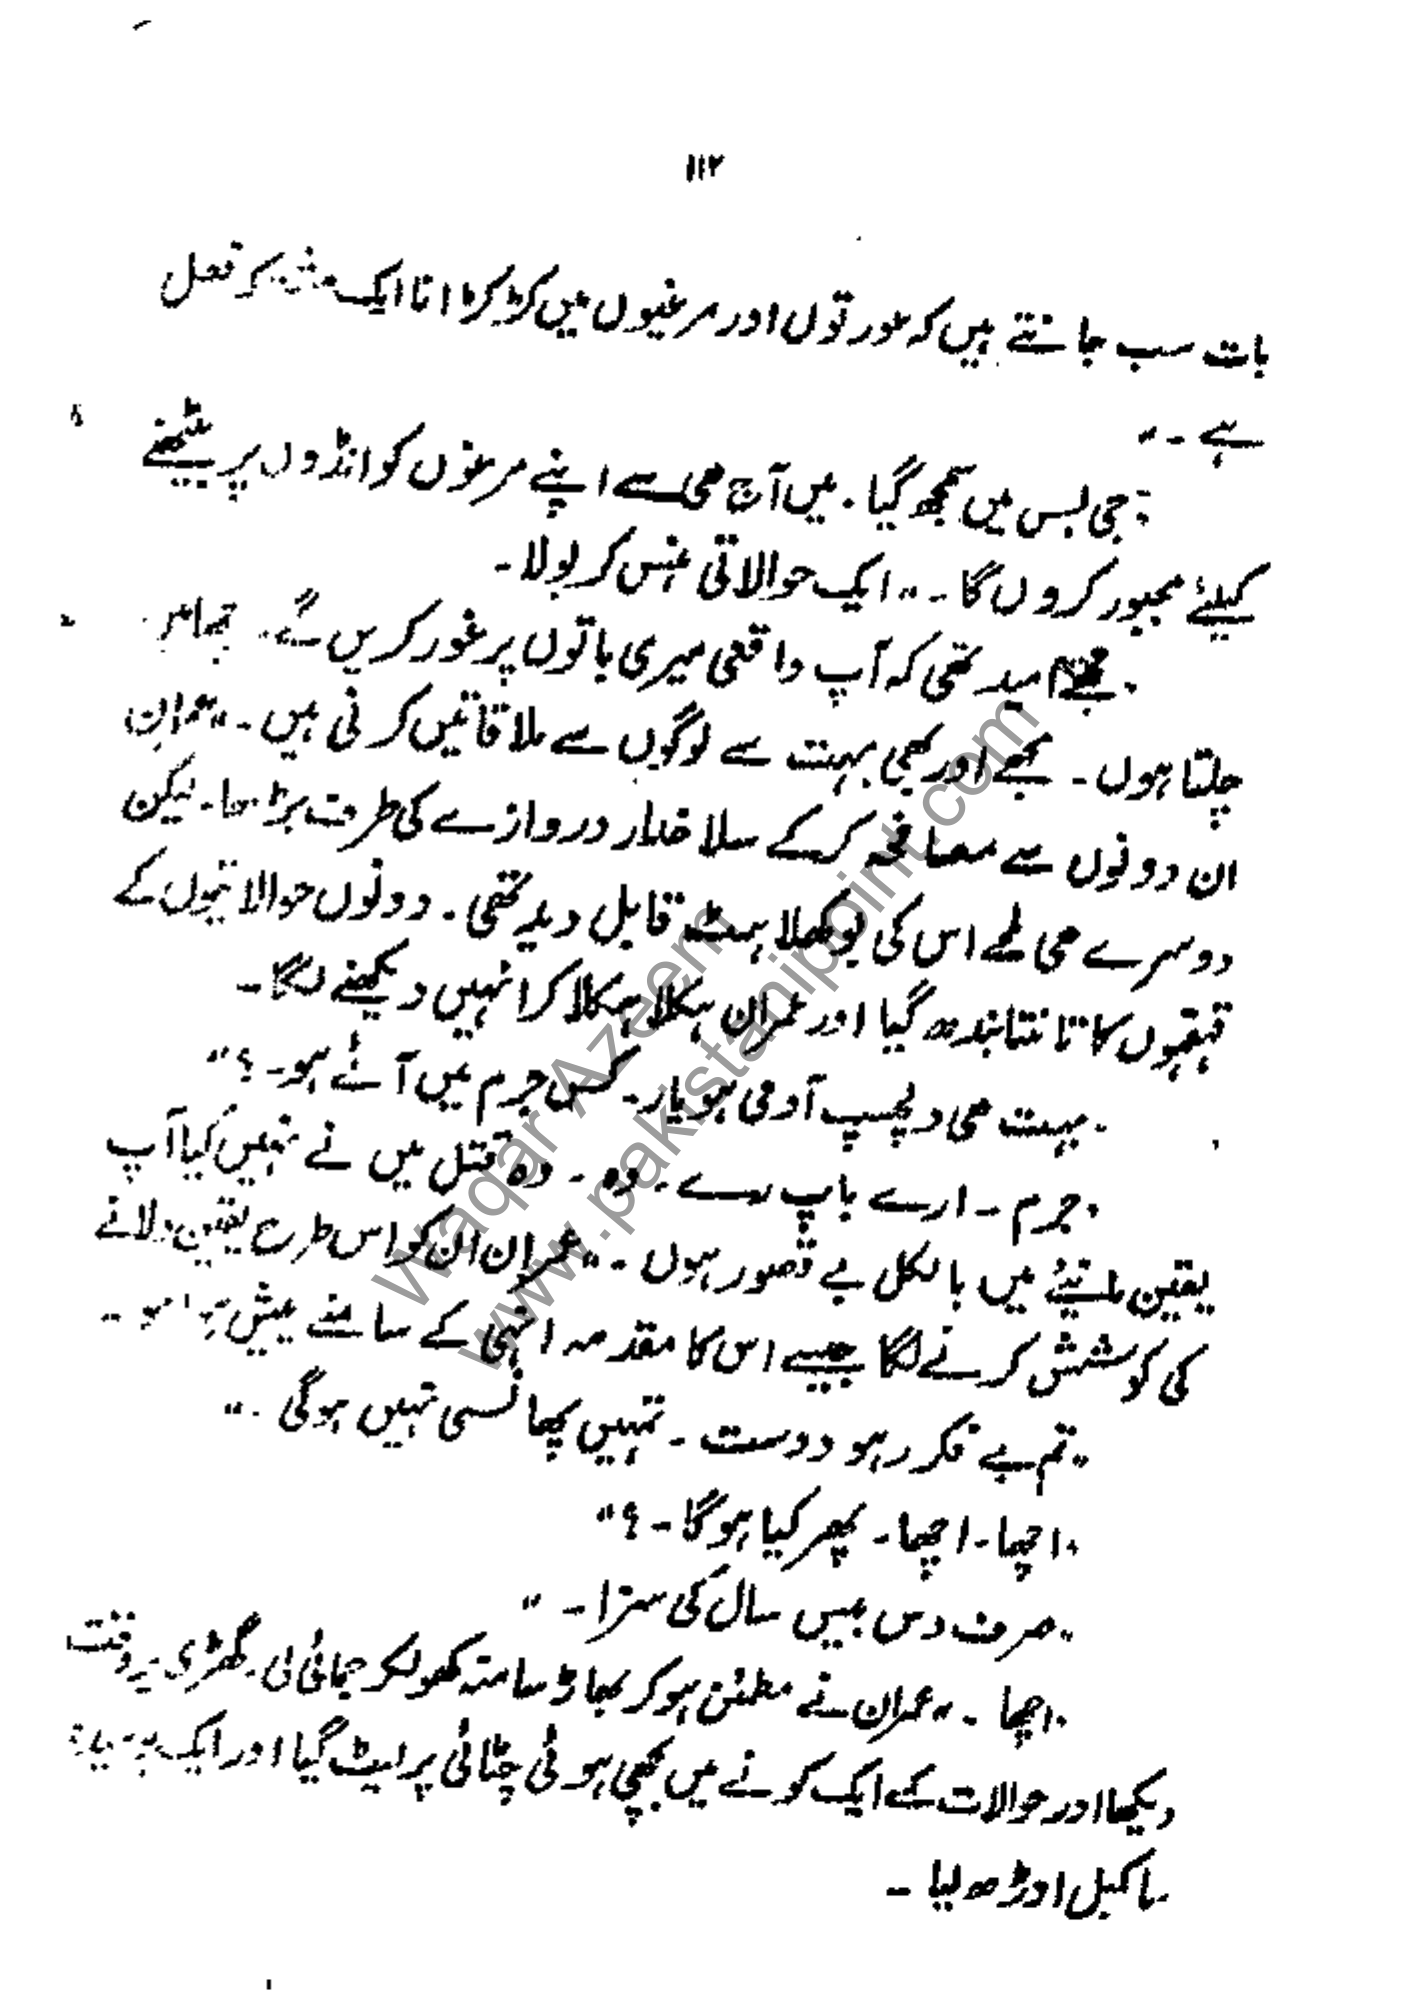 ۱۱۲
بات سب جانتے ہیں کہ عورتوں اور مرغیوں میں کڑکڑانا ایک مشترکہ فعل
ہے ۔"
"جی بس میں سمجھ گیا ۔ میں آج ہی سے اپنے مرغوں کو انڈوں پر بیٹھنے
کیلئے مجبور کروں گا ۔" ایک حوالاتی ہنس کر بولا ۔
"مجھے امید تھی کہ آپ واقعی میری باتوں پر غور کریں گے ۔ اچھا میں
چلتا ہوں ۔ مجھے اور بھی بہت سے لوگوں سے ملاقاتیں کرنی ہیں ۔" عمران
ان دونوں سے مصافحہ کرکے سلاخدار دروازے کی طرف بڑھا ۔ لیکن
دوسرے ہی لمحے اس کی بوکھلاہٹ قابل دید تھی ۔ دونوں حوالاتیوں کے
قہقہوں کا تانتا بندھ گیا اور عمران ہکلا ہکلا کر انہیں دیکھنے لگا ۔
"بہت ہی دلچسپ آدمی ہو یار ۔ کس جرم میں آئے ہو ۔ ؟"
"جرم ۔ ارے باپ رے ۔ وہ ۔ وہ قتل میں نے نہیں کیا آپ
یقین مانیئے میں بالکل بے قصور ہوں ۔" عمران ان کو اس طرح یقین دلانے
کی کوشش کرنے لگا جیسے اس کا مقدمہ انہی کے سامنے پیش ہوا ہو ۔
"تم بے فکر رہو دوست ۔ تمہیں پھانسی نہیں ہوگی ۔"
"اچھا ۔ اچھا ۔ پھر کیا ہوگا ۔ ؟"
"صرف دس بیس سال کی سزا ۔"
"اچھا ۔" عمران نے مطمئن ہوکر پھاڑ سا منہ کھولکر جمائی لی ۔ گھڑی پر وقت
دیکھا اور حوالات کے ایک کونے میں بچھی ہوئی چٹائی پر لیٹ گیا اور ایک بوسیدہ
سا کمبل اوڑھ لیا ۔
Waqar Azeem
www.pakistanipoint.com